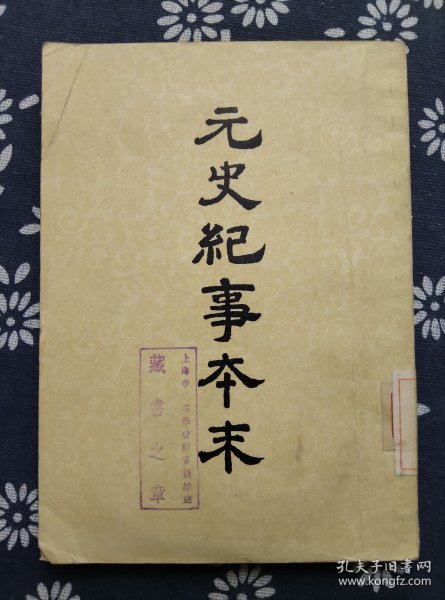 元史紀事本末
上海市
藏書之章
孔夫子旧书网
www.kongfz.com